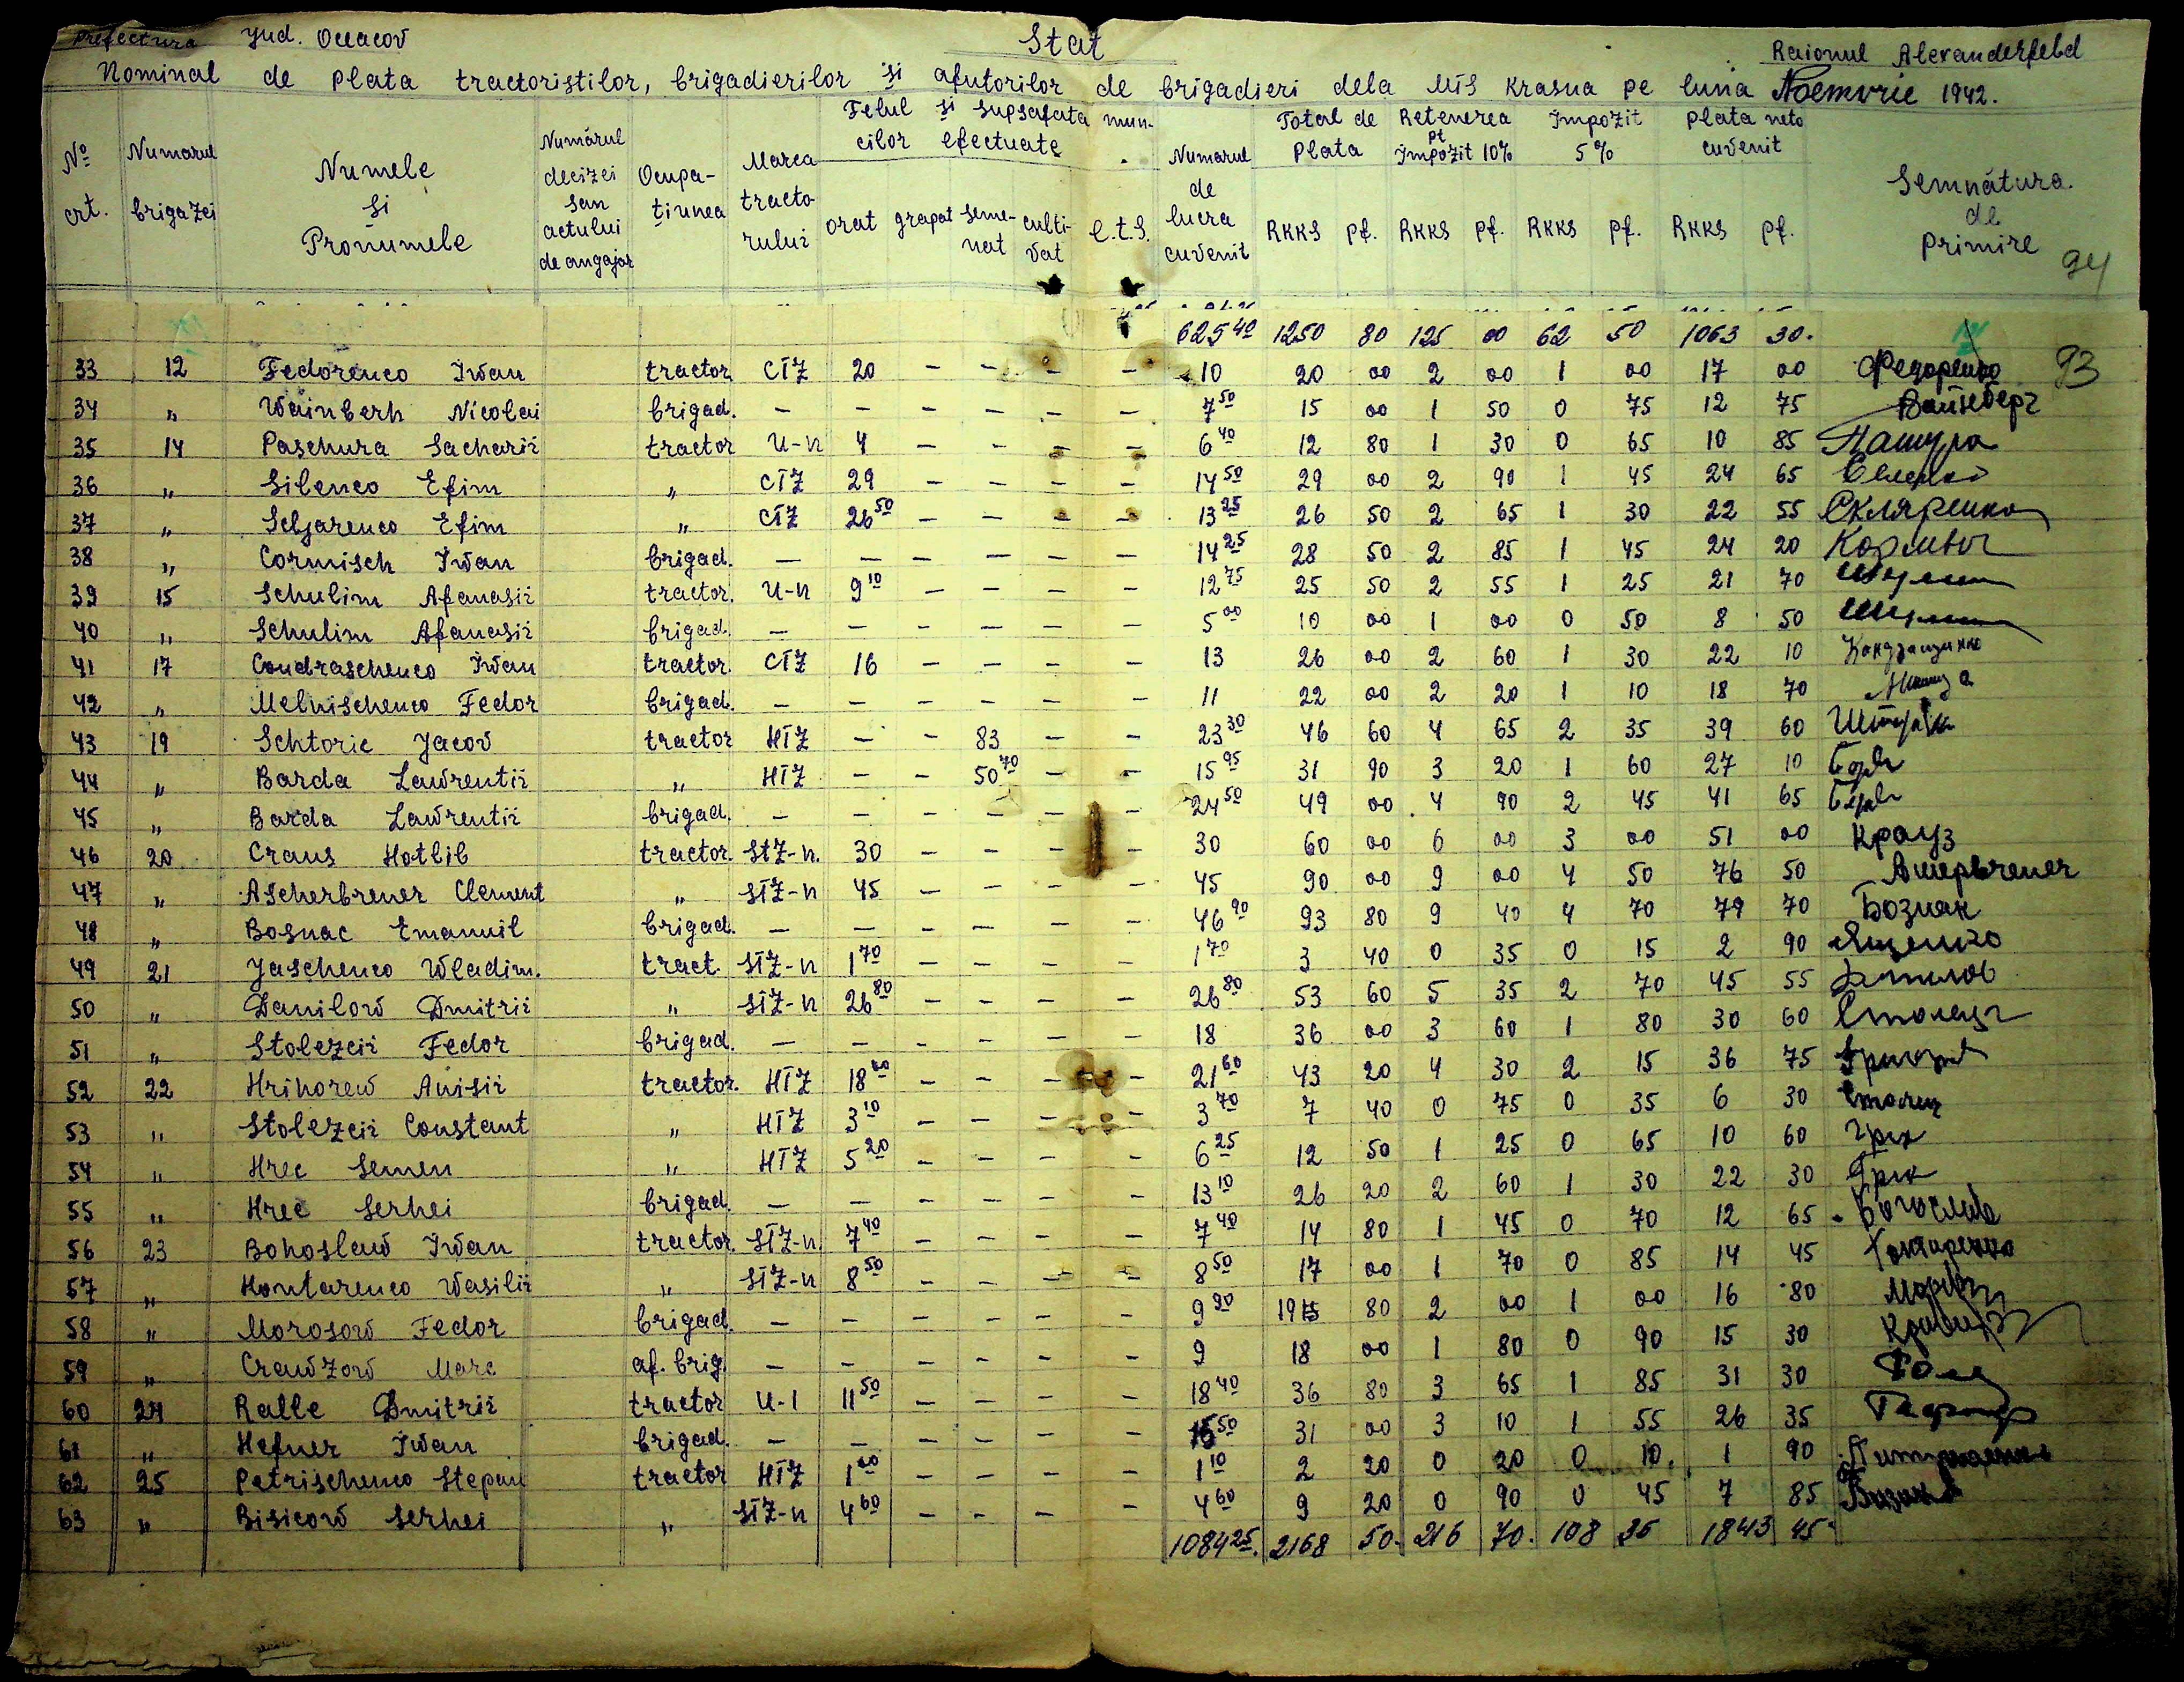 Prefectura Jud. Oceacov Stat Raionul Alexanderfeld
Nominal de plata tractoristilor, brigadierilor si afutorilor de brigadieri dela MTS Krasna pe luna Noemvrie 1942.
No crt. Numarul brigazei Numele si Pronumele Numărul decizei sau actului de angajar Ocupatiunea Marca tractorului Felul si supsafata muncilor efectuate orat grapat semenat cultivat e.t.s. Numarul de lucra cuvenit Total de plata RKKS pf. Retenerea pt impozit 10% RKKS pf. Impozit 5% RKKS pf. plata neto cuvenit RKKS pf. Semnătura de primire 94
625 40 1250 80 125 00 62 50 1063 30.
33 12 Fedorenco Iwan tractor CTZ 20 – – – – 10 20 00 2 00 1 00 17 00 Федоренко 93
34 „ Wainberh Nicolai brigad. – – – – – – 7 50 15 00 1 50 0 75 12 75 Вайнберг
35 14 Paschura Sacharii tractor U-n 4 – – – – 6 40 12 80 1 30 0 65 10 85 Пашура
36 „ Silenco Efim „ CTZ 29 – – – – 14 50 29 00 2 90 1 45 24 65
37 „ Scljarenco Efim „ CTZ 26 50 – – – – 13 25 26 50 2 65 1 30 22 55 Скляренко
38 „ Cormisch Iwan brigad. – – – – – – 14 25 28 50 2 85 1 45 24 20
39 15 Schulim Afanasii tractor. U-n 9 10 – – – – 12 75 25 50 2 55 1 25 21 70
40 „ Schulim Afanasii brigad. – – – – – – 5 00 10 00 1 00 0 50 8 50
41 17 Condraschenco Iwan tractor. CTZ 16 – – – – 13 26 00 2 60 1 30 22 10
42 „ Melnischenco Fedor brigad. – – – – – – 11 22 00 2 20 1 10 18 70
43 19 Schtoric Jacow tractor HTZ – – 83 – – 23 30 46 60 4 65 2 35 39 60
44 „ Barda Lawrentii „ HTZ – – 50 70 – – 15 95 31 90 3 20 1 60 27 10
45 „ Barda Lawrentii brigad. – – – – – – 24 50 49 00 4 90 2 45 41 65
46 20 Craus Hotlib tractor. STZ-n. 30 – – – – 30 60 00 6 00 3 00 51 00 Крауз
47 „ Ascherbrener Clement „ STZ-n 45 – – – – 45 90 00 9 00 4 50 76 50
48 „ Bosnac Emanuil brigad. – – – – – – 46 90 93 80 9 40 4 70 79 70 Бознак
49 21 Jaschenco Wladim. tract. STZ-n 1 70 – – – – 1 70 3 40 0 35 0 15 2 90 Ященко
50 „ Danilow Dmitrii „ STZ-n 26 80 – – – – 26 80 53 60 5 35 2 70 45 55
51 „ Stolezcii Fedor brigad. – – – – – – 18 36 00 3 60 1 80 30 60
52 22 Hrihorew Anisii tractor. HTZ 18 60 – – – – 21 60 43 20 4 30 2 15 36 75
53 „ Stolezcii Constant „ HTZ 3 10 – – – – 3 70 7 40 0 75 0 35 6 30
54 „ Hrec Semen „ HTZ 5 20 – – – – 6 25 12 50 1 25 0 65 10 60
55 „ Hrec Serhei brigad. – – – – – – 13 10 26 20 2 60 1 30 22 30
56 23 Bohoslaw Iwan tractor. STZ-n 7 40 – – – – 7 40 14 80 1 45 0 70 12 65
57 „ Hontarenco Wasilii „ STZ-n 8 50 – – – – 8 50 17 00 1 70 0 85 14 45
58 „ Morosow Fedor brigad. – – – – – – 9 90 19 80 2 00 1 00 16 80
59 „ Crawzow Marc af. brig. – – – – – – 9 18 00 1 80 0 90 15 30
60 24 Ralle Dmitrii tractor U-1 11 50 – – – – 18 40 36 80 3 65 1 85 31 30
61 „ Hefner Iwan brigad. – – – – – – 15 50 31 00 3 10 1 55 26 35
62 25 Petrischenco Stepan tractor HTZ 1 10 – – – – 1 10 2 20 0 20 0 10. 1 90
63 „ Bisicow Serhei „ STZ-n 4 60 – – – – 4 60 9 20 0 90 0 45 7 85
1084 25. 2168 50. 216 70. 108 35 1843 45.